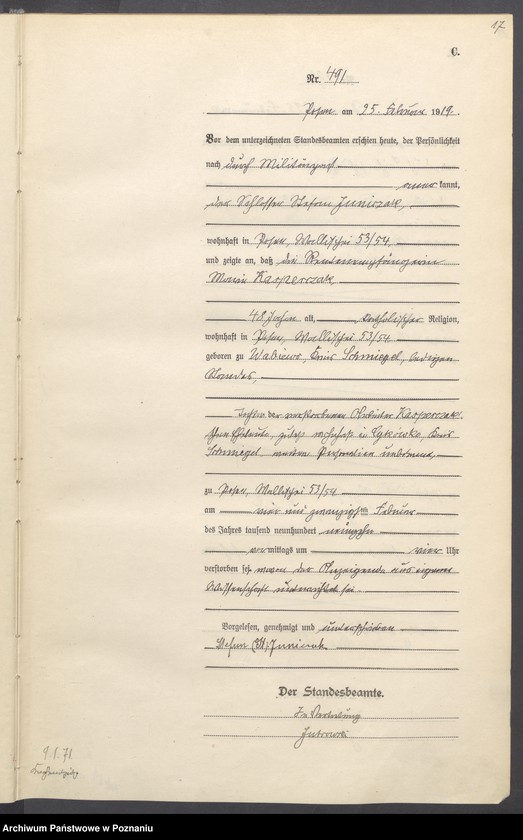 17
C.
Nr. 491
Posen am 25. Februar 1919.
Vor dem unterzeichneten Standesbeamten erschien heute, der Persönlichkeit
nach durch Militärpaß
anerkannt,
der Schlosser Stefan Juniczak,
wohnhaft in Posen, Wallischei 53/54
und zeigte an, daß die Rentenempfängerin
Marie Kasperczak
48 Jahre alt, katholischer Religion,
wohnhaft in Posen, Wallischei 53/54
geboren zu Kreis Schmiegel, ledigen
Standes,
Tochter der verstorbenen Arbeiter Kasperczak
zuletzt wohnhaft in Kreis
Schmiegel
zu Posen, Wallischei 53/54
am vier und zwanzigsten Februar
des Jahres tausend neunhundert neunzehn
vormittags um vier Uhr
verstorben sei, wovon der Anzeigende aus eigener
Wissenschaft unterrichtet sei.
Vorgelesen, genehmigt und unterschrieben
Stefan (St) Juniczak
Der Standesbeamte.
In Vertretung
9.1.71
Archiwum Państwowe w Poznaniu